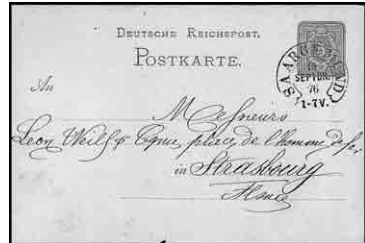 DEUTSCHE REICHSPOST.
POSTKARTE.
SAARGEMÜND
SEPTBR.
76
1-7V.
An
Messieurs
Leon Weill & Cgnie, place de l'homme de fer
in Strasbourg
Alsace